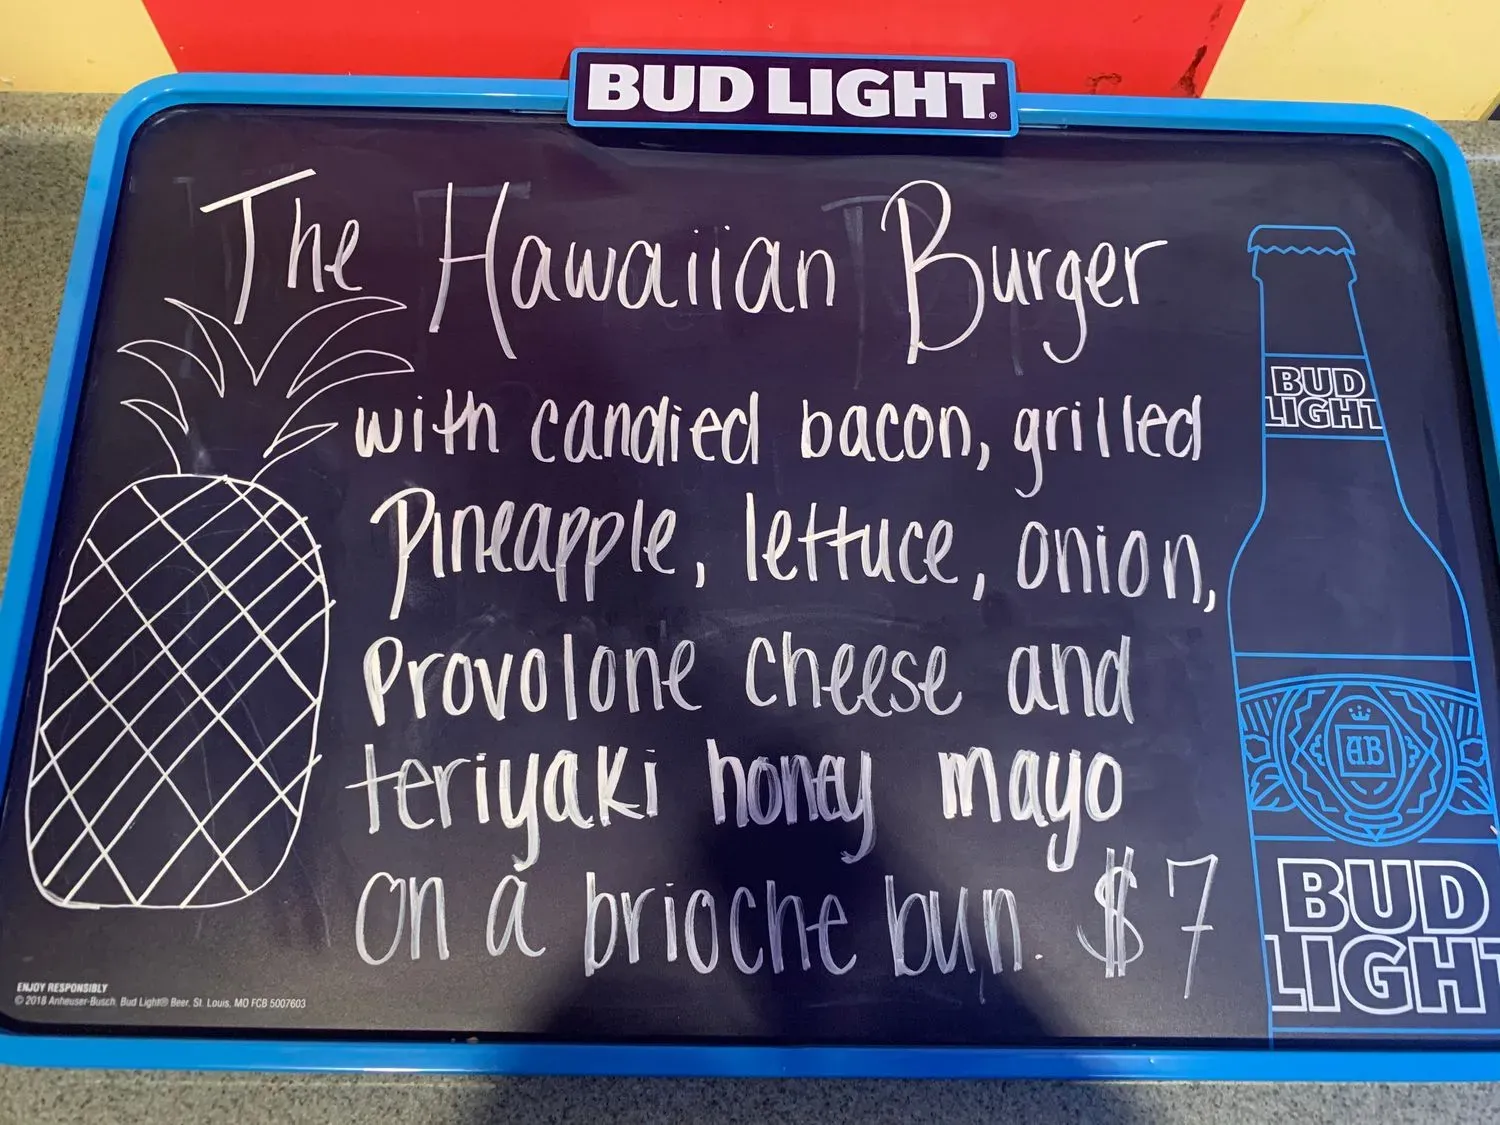 BUD LIGHT
The Hawaiian Burger
with candied bacon, grilled
Pineapple, lettuce, onion,
Provolone cheese and
teriyaki honey mayo
on a brioche bun. $7
BUD
LIGHT
AB
BUD
LIGHT
ENJOY RESPONSIBLY
© 2018 Anheuser-Busch, Bud Light® Beer, St. Louis, MO FCB 5007603